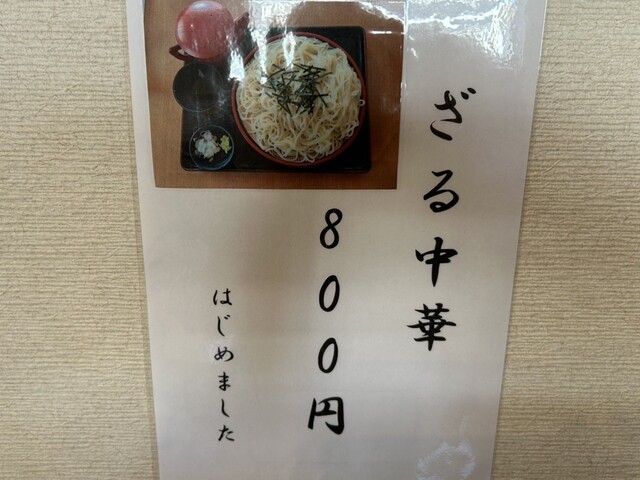 ざる中華
800円
はじめました